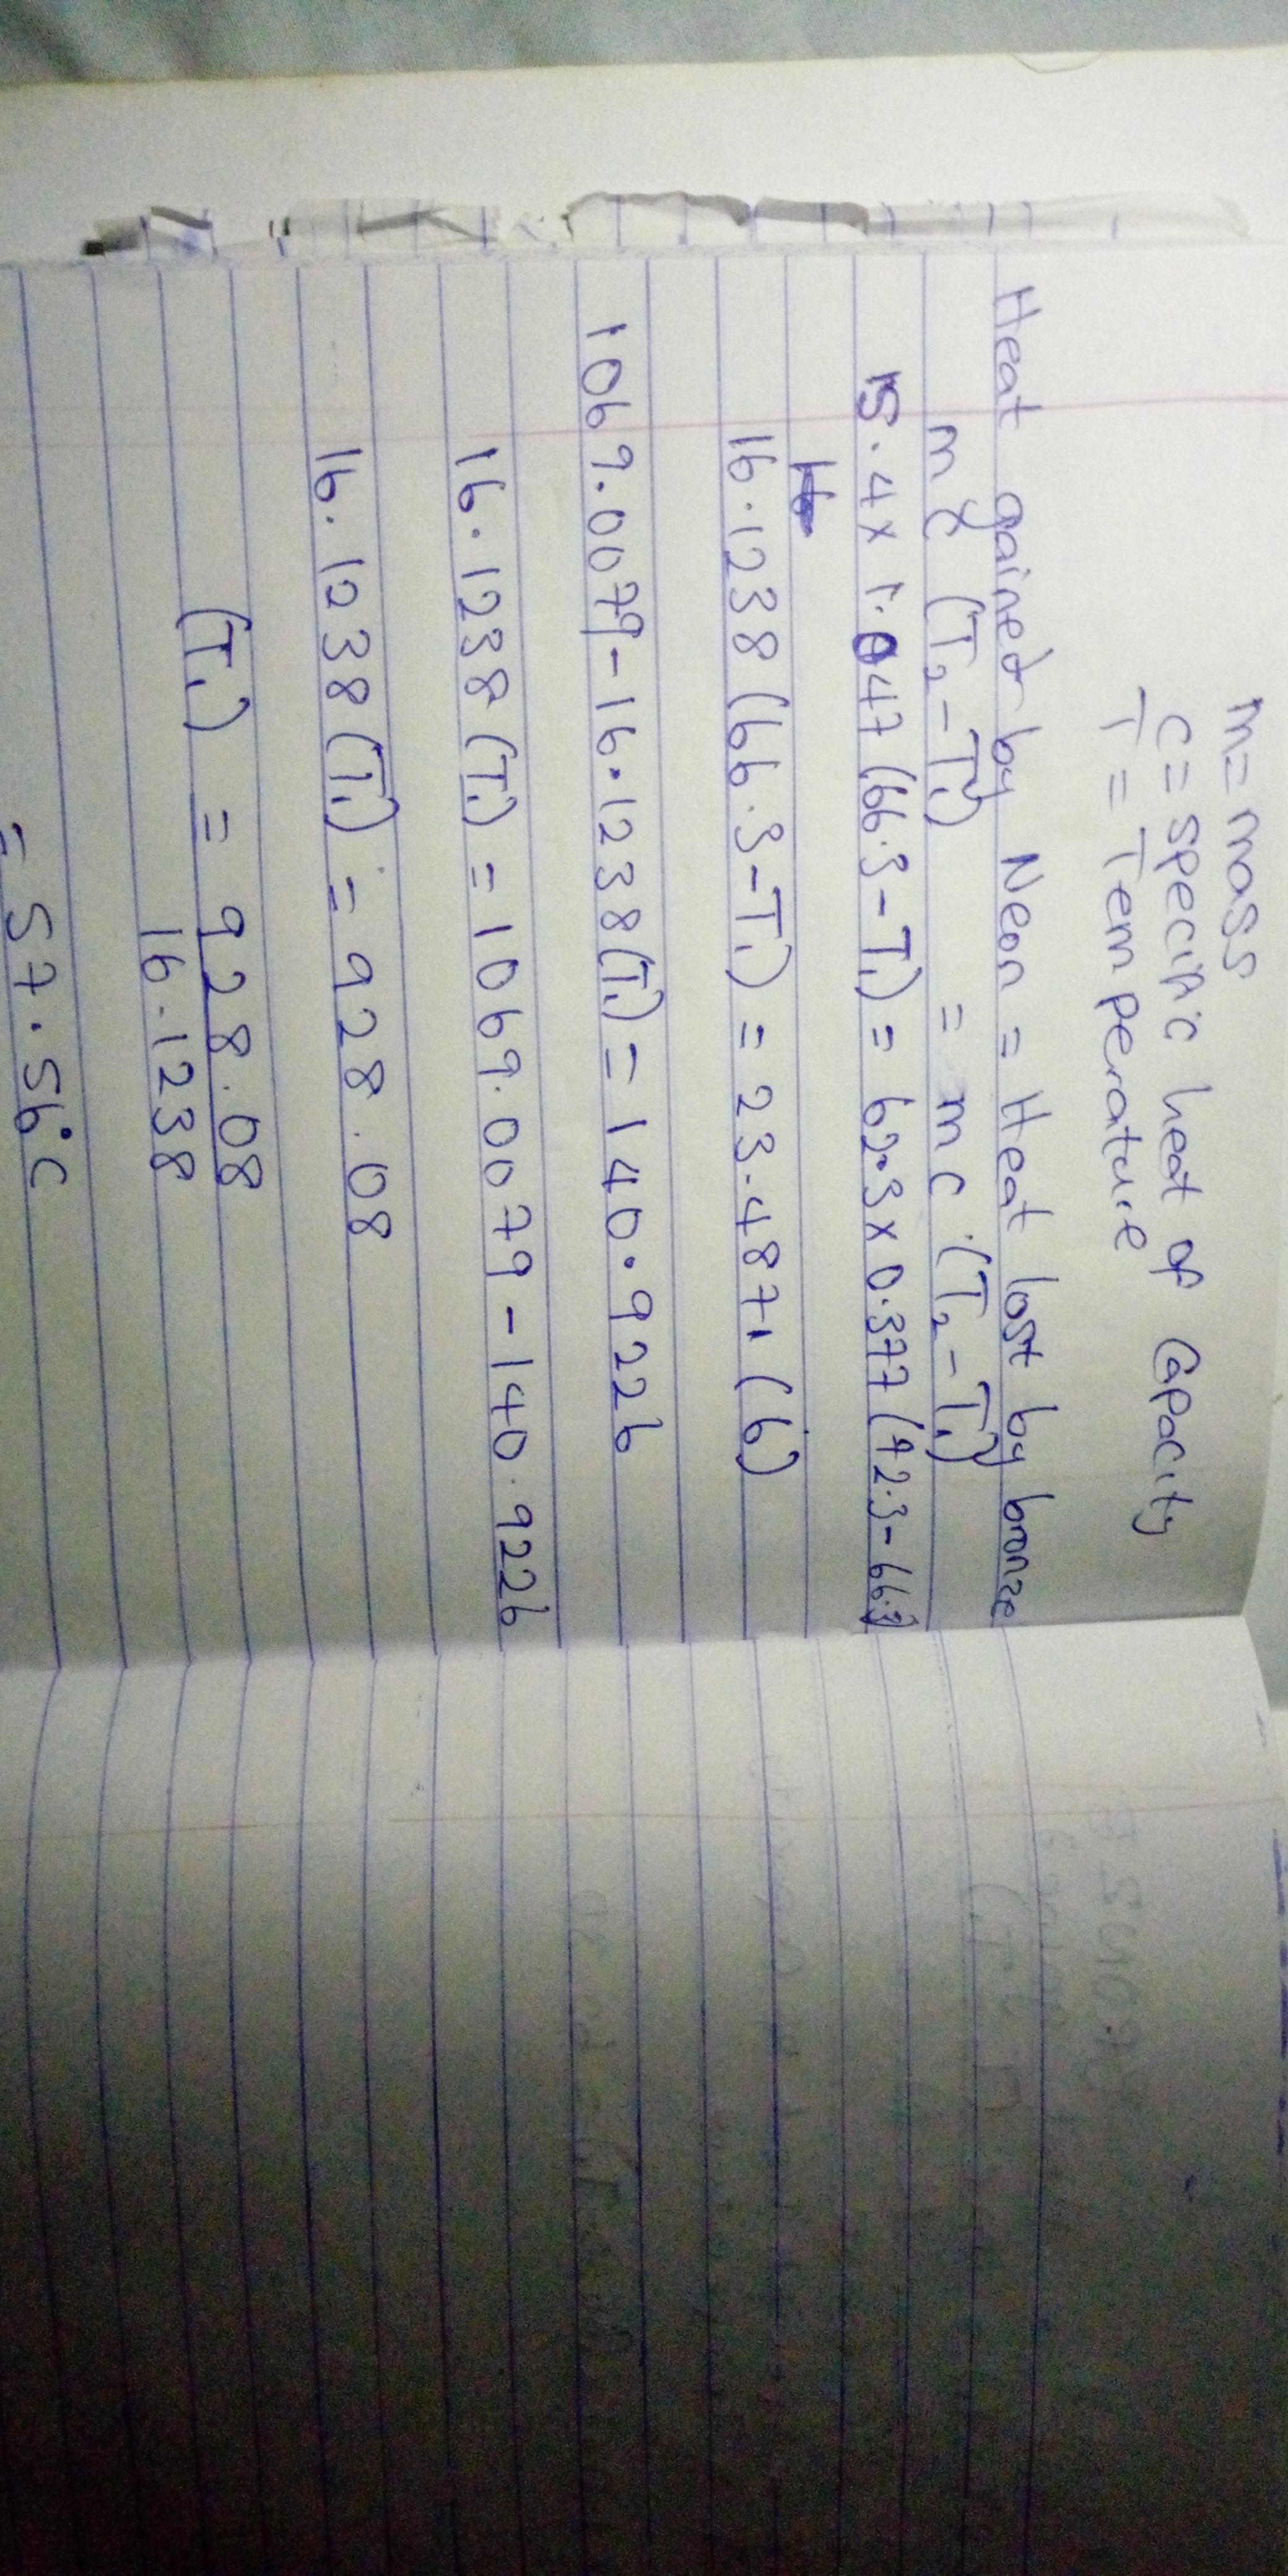 m = mass
c = specific heat of capacity
T = Temperature
Heat gained by Neon = Heat lost by bronze
mc (T₂ - T₁) = mc (T₂ - T₁)
15.4 x 1.047 (66.3 - T₁) = 62.3 x 0.377 (72.3 - 66.3)
16.1238 (66.3 - T₁) = 23.4871 (6)
1069.0079 - 16.1238 (T₁) = 140.9226
16.1238 (T₁) = 1069.0079 - 140.9226
16.1238 (T₁) = 928.08
(T₁) = 928.08
16.1238
= 57.56°c